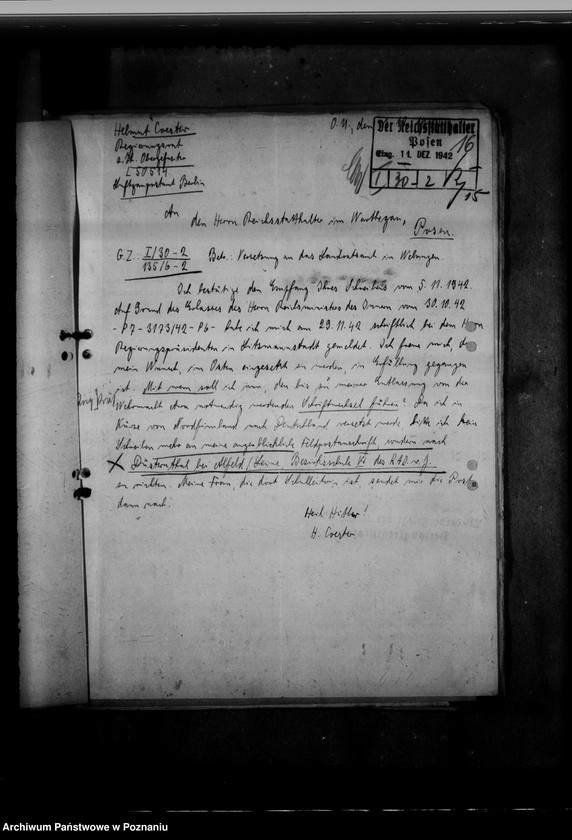 Helmut Coester
Regierungsrat
z. Zt. Obergefreiter
L 50514
Luftgaupostamt Berlin
O.U., den
Der Reichsstatthalter
Posen
Eing. 11. DEZ. 1942
I 30-2
16
15
An
den Herrn Reichsstatthalter im Warthegau,
Posen.
G.Z.: I/30-2
135/6-2
Betr.: Versetzung an das Landratsamt in Welungen.
Ich bestätige den Empfang Ihres Schreibens vom 5.11.1942.
Auf Grund des Erlasses des Herrn Reichsministers des Innern vom 30.10.42
- P7 - 3173/42 - P6 - habe ich mich am 29.11.42 schriftlich bei dem Herrn
Regierungspräsidenten in Litzmannstadt gemeldet. Ich freue mich, daß
mein Wunsch, im Osten eingesetzt zu werden, in Erfüllung gegangen
ist. Mit wem soll ich nun, den bis zu meiner Entlassung von der
Wehrmacht etwa notwendig werdenden Schriftwechsel führen? Da ich in
Kürze von Nordfinnland nach Deutschland versetzt werde, bitte ich kein
Schreiben mehr an meine augenblickliche Feldpostanschrift, sondern nach
Düsternthal bei Alfeld/Leine, Bezirksschule VI des RAD. w. J.
zu richten. Meine Frau, die dort Schulleiterin ist, sendet mir die Post
dann nach.
Heil Hitler!
H. Coester
Archiwum Państwowe w Poznaniu